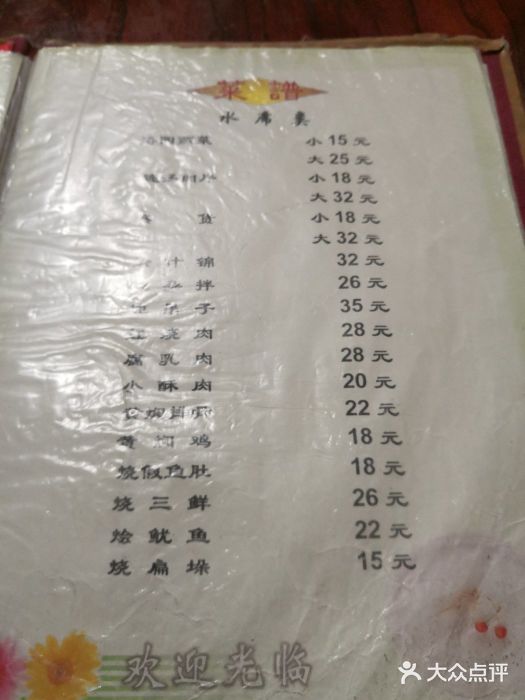 菜譜
水席类
小 15 元
大 25 元
小 18 元
大 32 元
小 18 元
大 32 元
什锦 32 元
拌 26 元
子 35 元
烧肉 28 元
腐乳肉 28 元
小酥肉 20 元
22 元
黄焖鸡 18 元
烧假鱼肚 18 元
烧三鲜 26 元
烩鱿鱼 22 元
烧扁垛 15 元
欢迎光临
大众点评